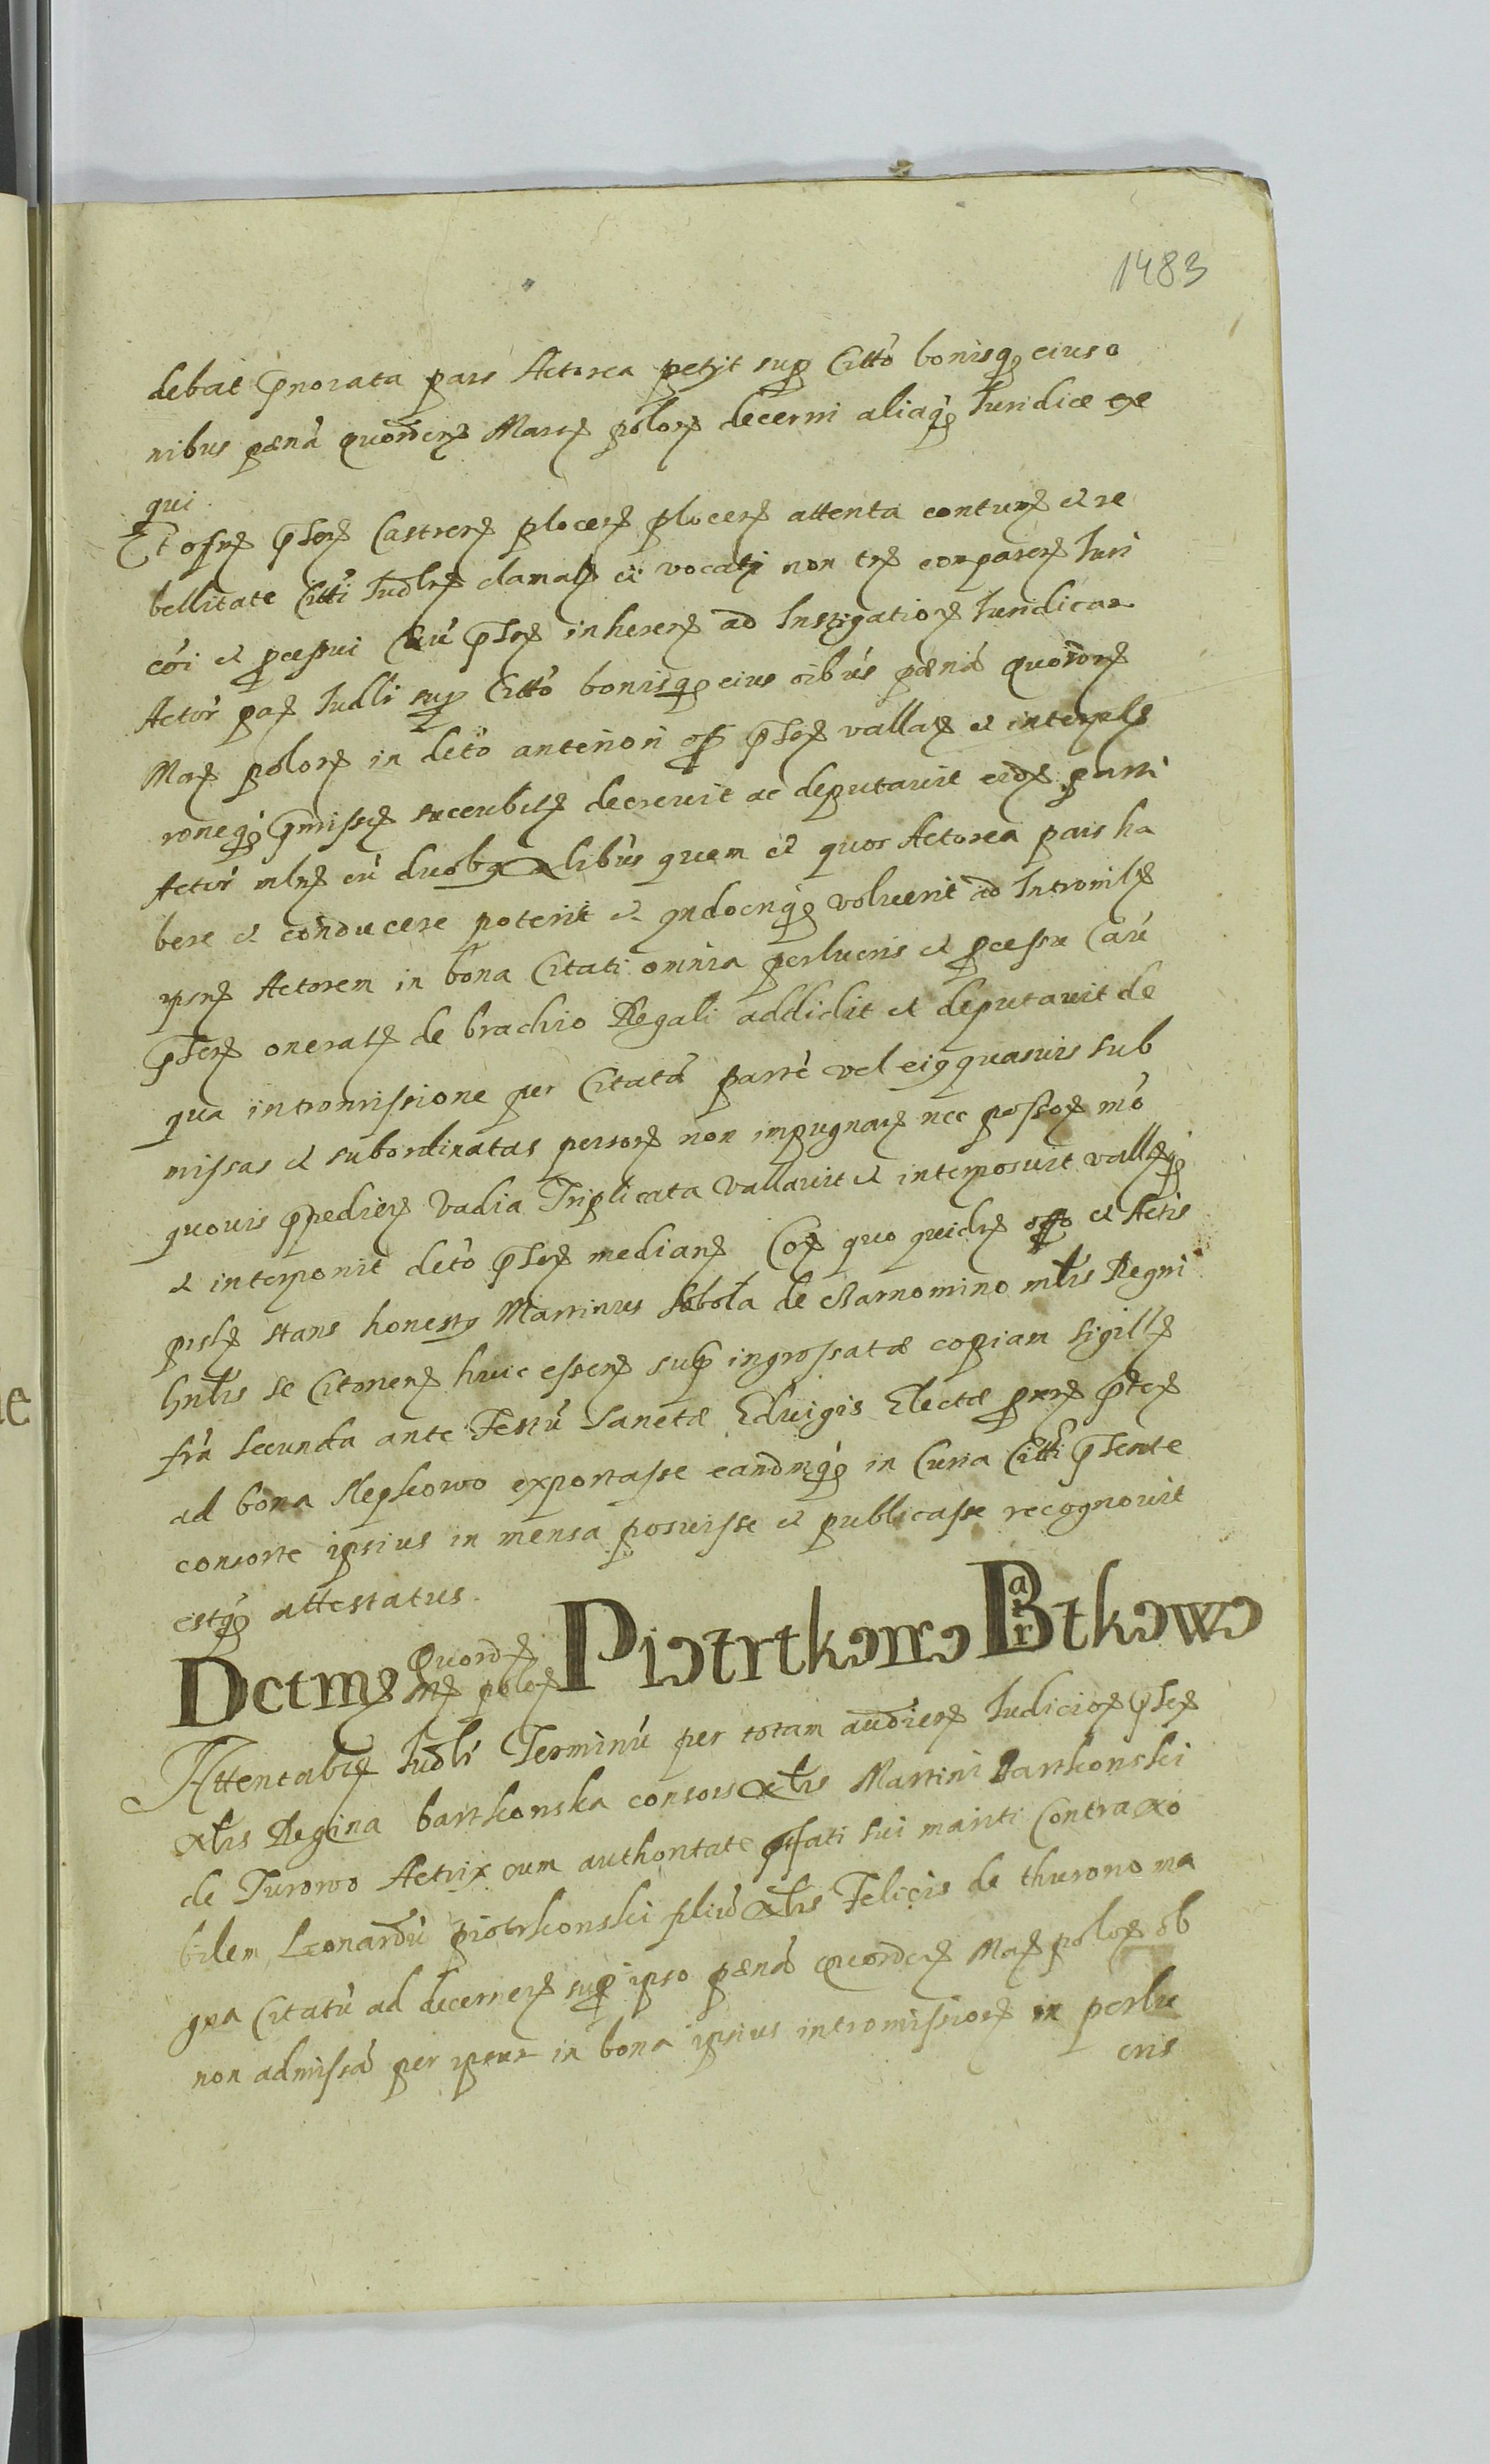 1483
debat pnorata pars Actorea petijt sup Citto bonisq eius o
nibus pœna quorden Marc polon decerni aliaq Iuridice exe
qui
Et offm pnsen Castren plocen plocen attenta contum et re
bellitate Citti Iudlr clamat et vocati non tn comparen Iuri
coi et pcessui Cau pnsen inheren ad Instigation Iuridicam
Actor par Iudli sup Citto bonisq eius oibus pœna quorden
Mar polon in deto anteriori off pnsen vallat et interpos
roneq pmissor succubit decrevit ac deputavit eidem parti
Actor mlm cu duobq Nlibus quem et quos Actorea pars ha
bere et conducere poterit et qndocnq voluerit ad Intromitt
ipsm Actorem in bona Citati omnia perlucris et pcessu Cau
pnsen onerat de brachio Regali addidit et deputavit de
qua intromissione per Citatu parte vel eigquasvis sub
missas et subordinatas person non impugnan nec possor mo
quovis ppedien Vadia Triplicata Vallavit et interposuit vallq
et interponit deto pnsen median Cor quo quidem offo et Actis
pislr stans honestq Martinus Sobota de Czarnomino mtris Regni
Gntlis se Citonem huic essen sup ingrossatæ copiam sigill
fra secunda ante Festu Sanctæ Eduigis Electæ pxm pter
ad bona Slepkowo exportasse eandmq in Curia Citti pnsente
consorte ipsius in mensa posuisse et publicasse recognovit
estq attestatus.
Dctm Quord M polon Piotrtkowo Bartkowo
Attentabtr Iudli Terminu per totam audien Iudicior pnsen
Ntis Regina bartkonska consors Ntis Martini Bartkonski
de Turowo Actrix cum authoritate pfati sui mariti Contra No
bilem Leonardu piotrkonski filiu Ntis Felicis de thurono ma
gna Citatu ad decernen sup ipso pœna quorden Mar polon ob
non admissa per ipsum in bona ipsius intromission in perlu
cris